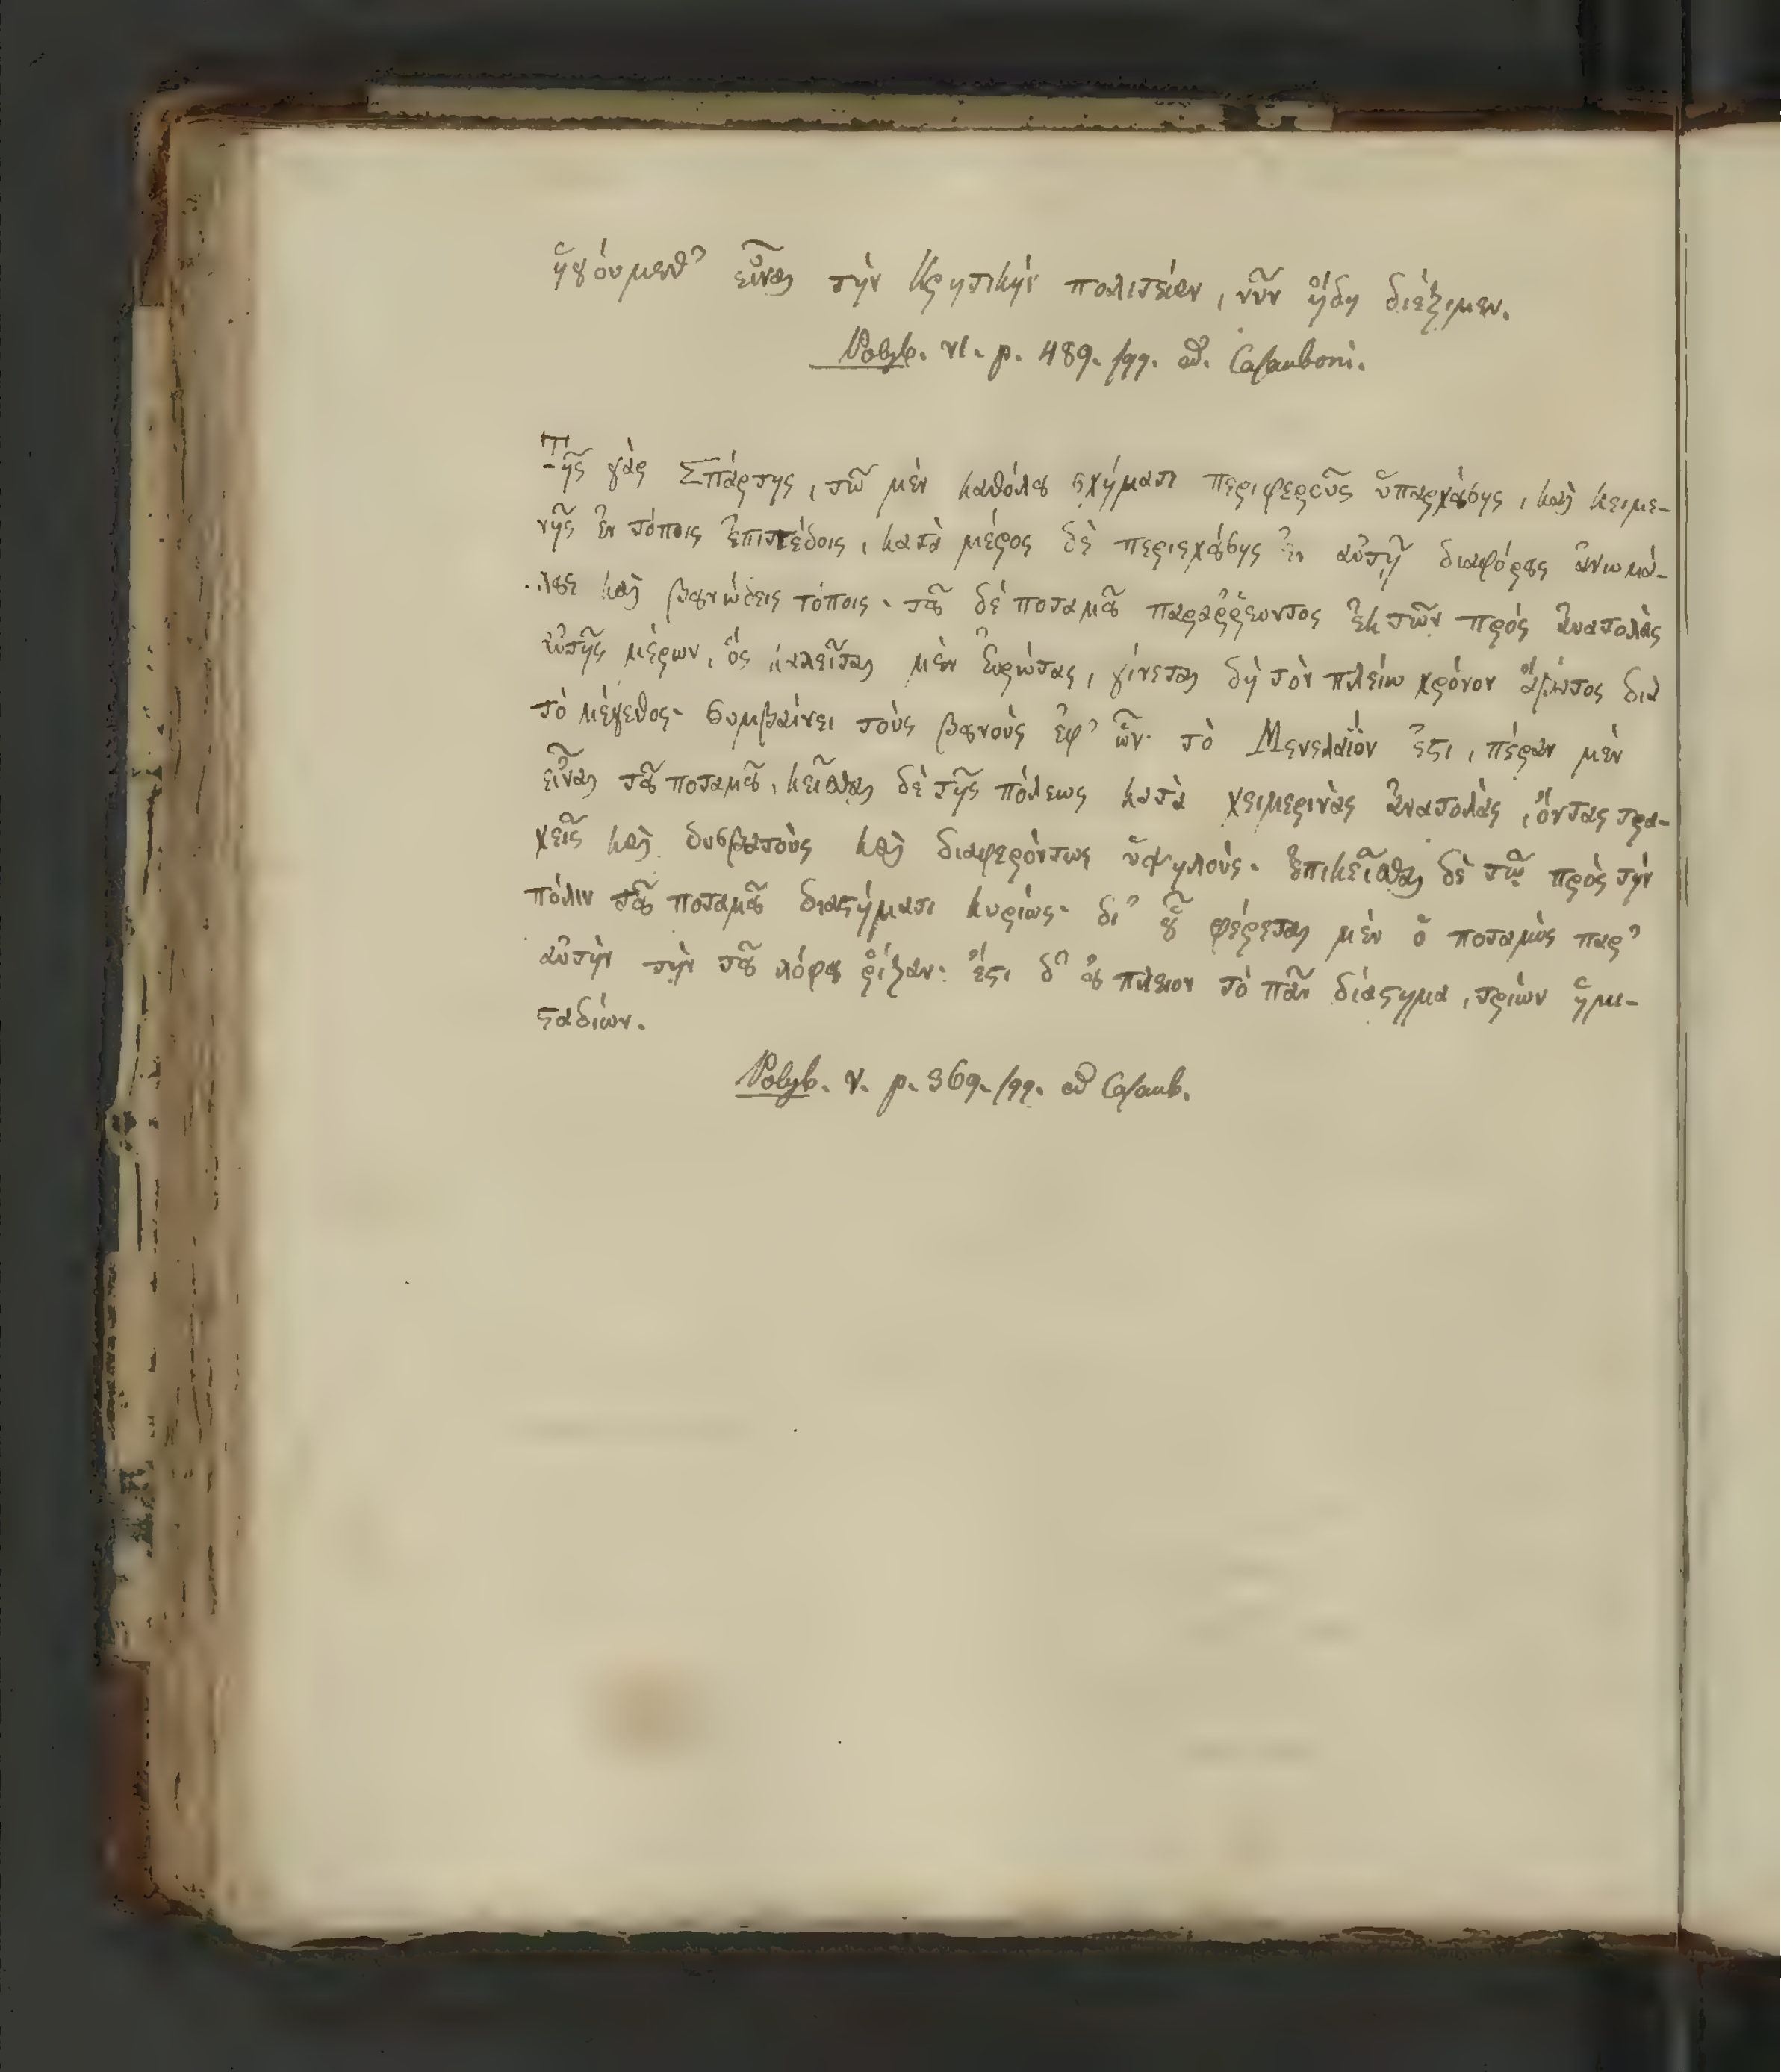 ἡγούμεθ' εἶναι τὴν Κρητικὴν πολιτείαν, νῦν ἤδη διέξιμεν.
Polyb. VI. p. 489. sqq. ed. Casauboni.
Τῆς γὰρ Σπάρτης, τῷ μὲν καθόλου σχήματι περιφεροῦς ὑπαρχούσης, καὶ κειμέ-
νης ἐν τόποις ἐπιπέδοις, κατὰ μέρος δὲ περιεχούσης ἐν αὐτῇ διαφόρους ἀνωμά-
λους καὶ βουνώδεις τόποις. τοῦ δὲ ποταμοῦ παραῤῥέοντος ἐκ τῶν πρὸς ἀνατολὰς
αὐτῆς μέρων, ὃς καλεῖται μὲν Εὐρώτας, γίνεται δὴ τὸν πλείω χρόνον ἄβατος διὰ
τὸ μέγεθος. συμβαίνει τοὺς βουνοὺς ἐφ' ὧν τὸ Μενελάϊόν ἐστι, πέραν μὲν
εἶναι τοῦ ποταμοῦ, κεῖσθαι δὲ τῆς πόλεως κατὰ χειμερινὰς ἀνατολὰς, ὄντας τρα-
χεῖς καὶ δυσβατοὺς καὶ διαφερόντως ὑψηλούς. ἐπικεῖσθαι δὲ τῷ πρὸς τὴν
πόλιν τοῦ ποταμοῦ διαστήματι κυρίως. δι' οὗ φέρεται μὲν ὁ ποταμὸς παρ'
αὐτὴν τὴν τοῦ λόφου ῥίζαν. ἔστι δ' οὐ πλειον τὸ πᾶν διάστημα, τριών ἡμι-
σταδίων.
Polyb. V. p. 369. sqq. ed Casaub.